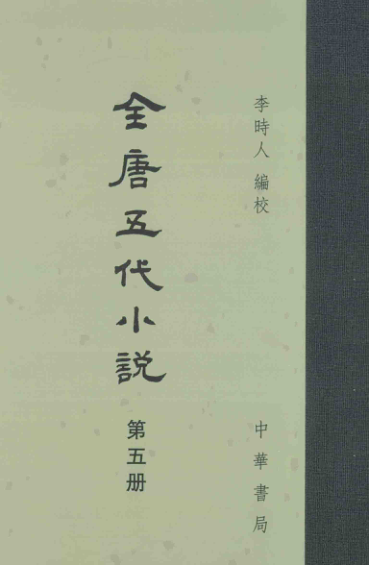 李時人 編校
全唐五代小說
第五册
中華書局